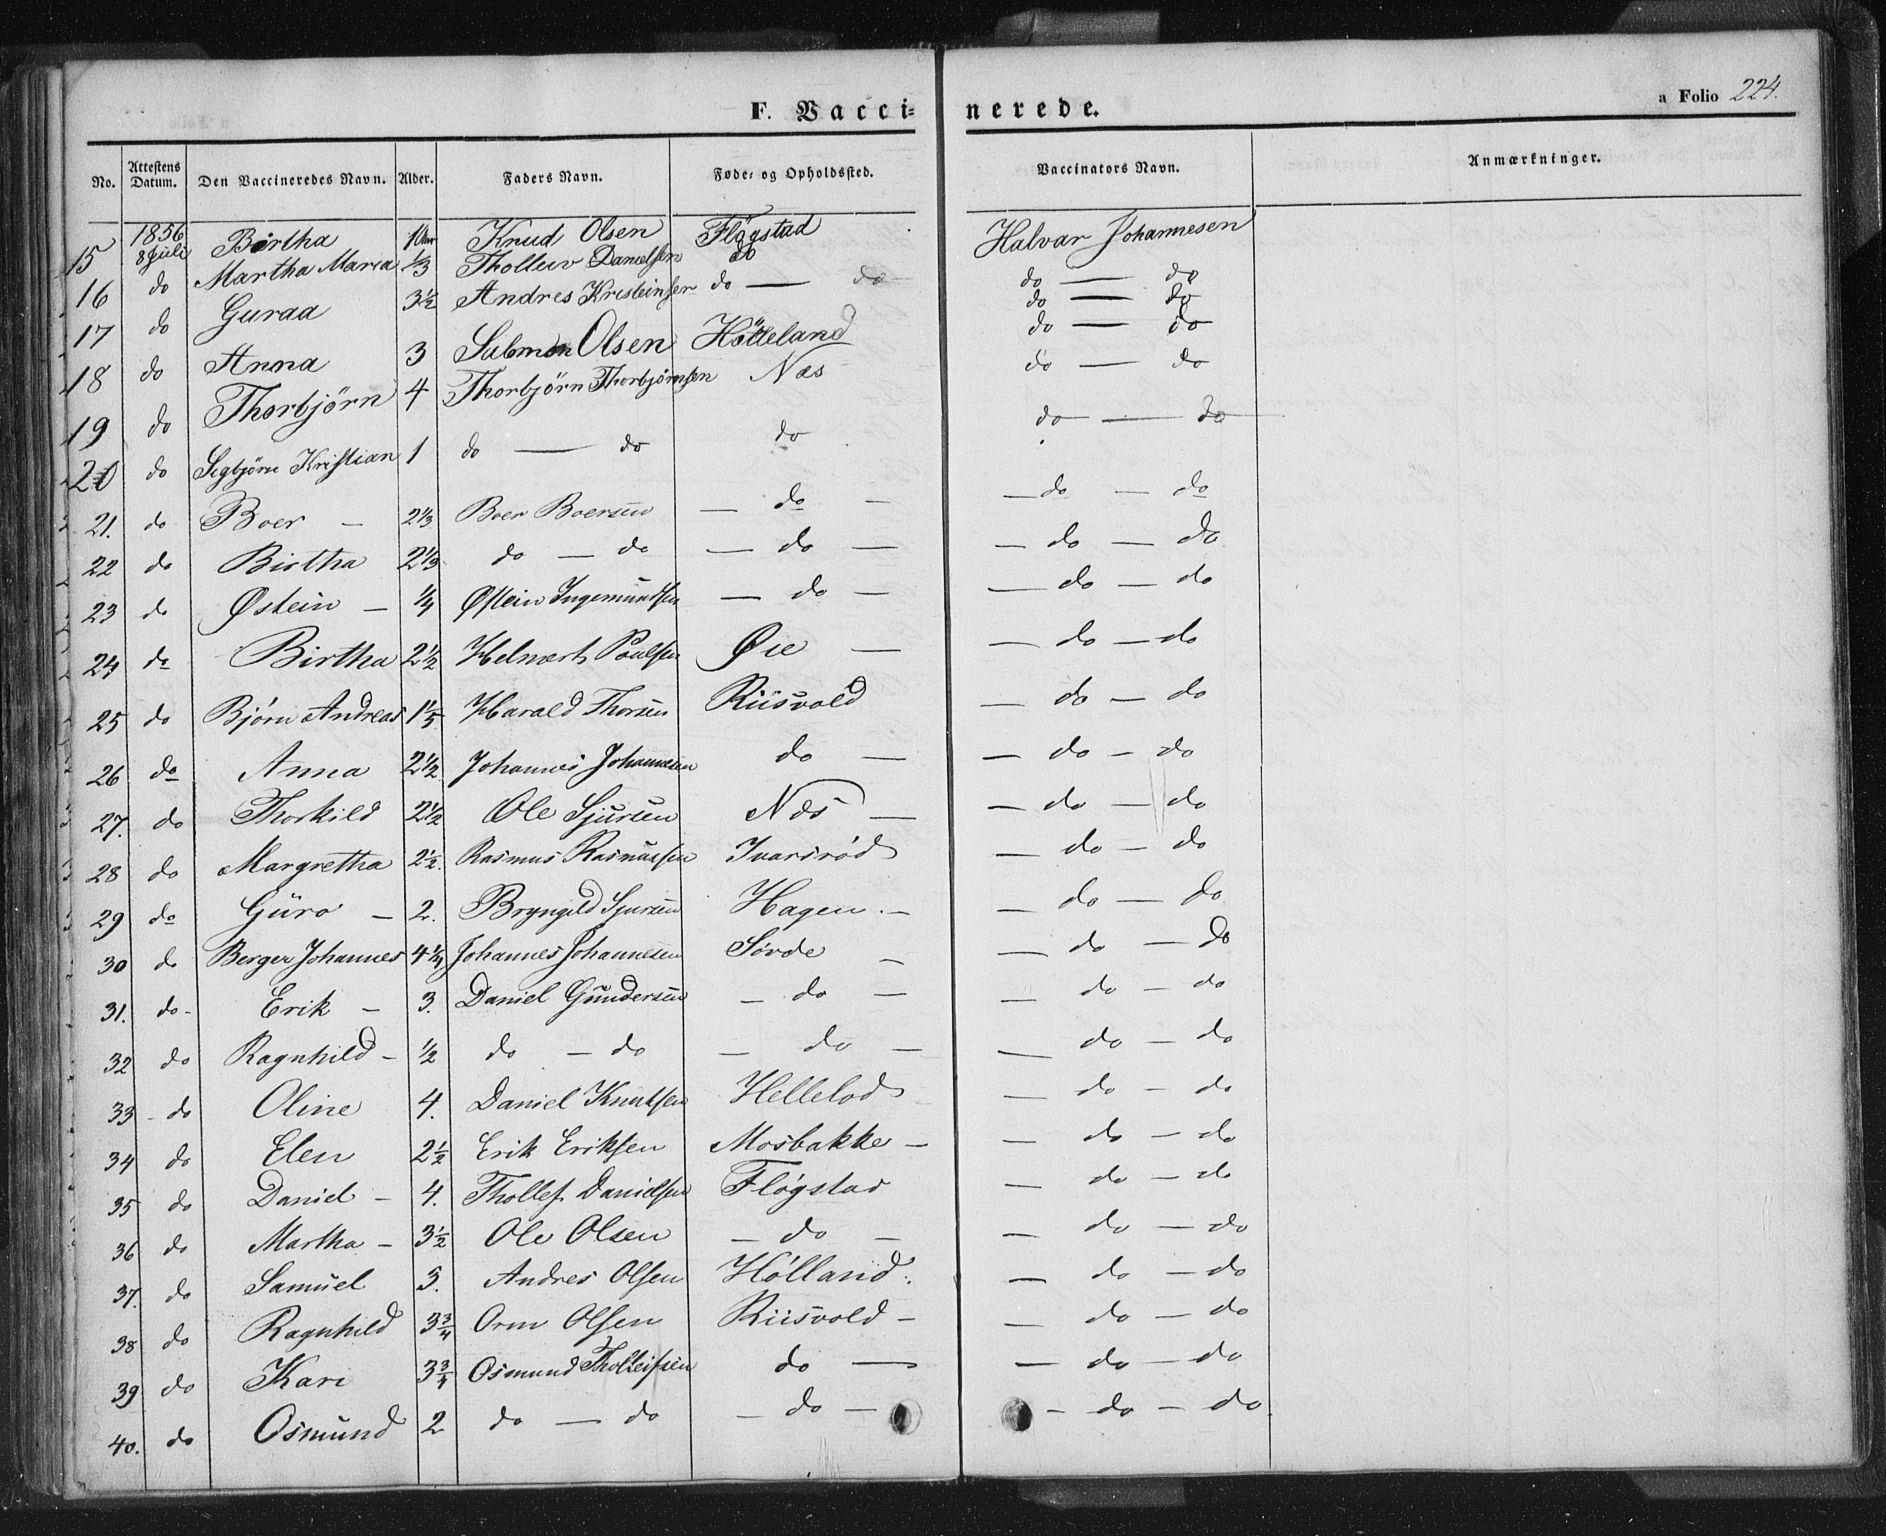 F. Vaccinerede.
a Folio 224.
No. Attestens Datum. Den Vaccineredes Navn. Alder. Faders Navn. Føde- og Opholdssted. Vaccinators Navn. Anmærkninger.
15 1856 8 Juli Birtha Knud Olsen Flögstad Halvar Johannesen
16 do Martha Maria 1/3 Thollew Danielsen do do — do
17 do Guraa 3½ Andres Kristeinsen do — do do — do
18 do Anna 3 Salomon Olsen Hölleland do — do
19 do Thorbjörn 4 Thorbjörn Thorbjörnsen Næs do — do
20 do Segbjörn Kristian 1 do — do do do — do
21. do Boer — 2⅓ Boer Boersen — do — — do — do
22 do Birtha 2⅓ do — do — do — — do — do
23 do Østein — ¼ Østein Ingemundsen — do — — do — do
24 do Birtha 2½ Helmert Poulsen Øie — — do — do
25 do Bjørn Andreas 1⅕ Harald Thorsen Riisvold — do — do
26 do Anna 2½ Johannes Johannesen do — — do — do
27. do Thorkild 2½ Ole Sjursen Næs — — do — do
28 do Margretha 2½. Rasmus Rasmussen Ivarsrød — do — do
29 do Guro — 2. Bryngeld Sjursen Hagen. — — do — do
30 do Berger Johannes 4¼ Johannes Johannesen Søvde — — do — do
31. do - Erik — 3. Daniel Gundersen — do — — do — do
32 do Ragnhild — ½ do — do — do — — do — do
33 - do Oline 4. Daniel Knutsen Hellelod — do — do
34 do Elen 2½ Erik Eriksen Mosbakke — — do — do
35 do Daniel — 4. Thollef Danielsen Fløgstad — do — do
36 do Martha — 3½ Ole Olsen — do — — do — do
37. do Samuel 3. Andres Olsen Hølland. — do — do
38 do Ragnhild 3¾ Orm Olsen Riisvold — — do — do
39 do Kari 3¾ Osmund Tholleifsen do — — do — do
40. do Osmund 2 do — do — do — — do — do